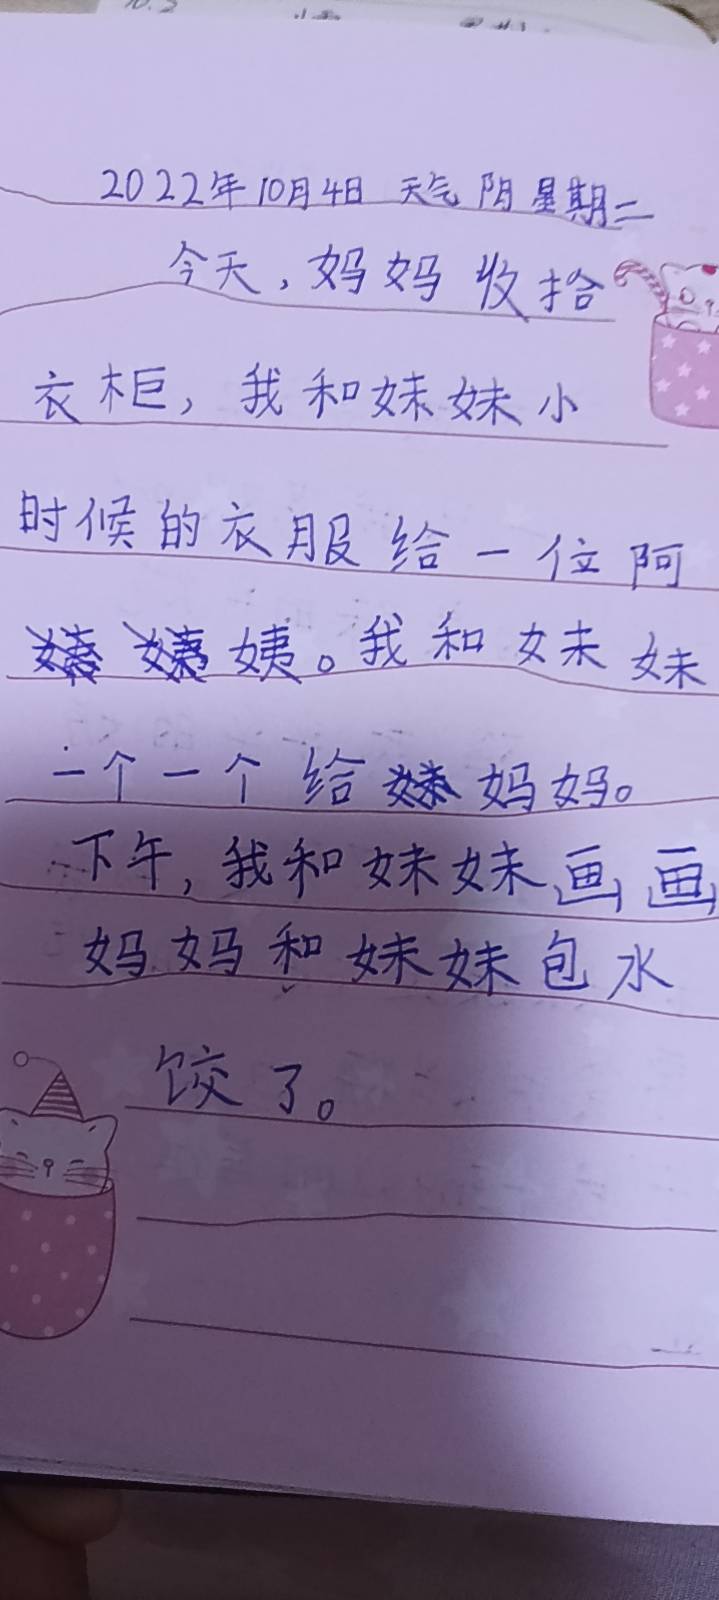 2022年10月4日 天气 阴 星期二
今天，妈妈收拾
衣柜，我和妹妹小
时候的衣服给一位阿
姨。我和妹妹
一个一个给妈妈。
下午，我和妹妹画画
妈妈和妹妹包水
饺了。